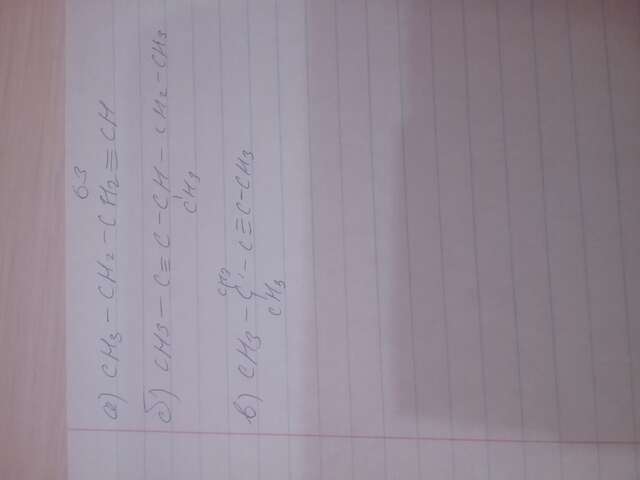 63
а) CH3 – CH2 – CH2 ≡ CH
б) CH3 – C ≡ C – CH – CH2 – CH3
CH3
CH3
в) CH3 – C – C ≡ C – CH3
CH3